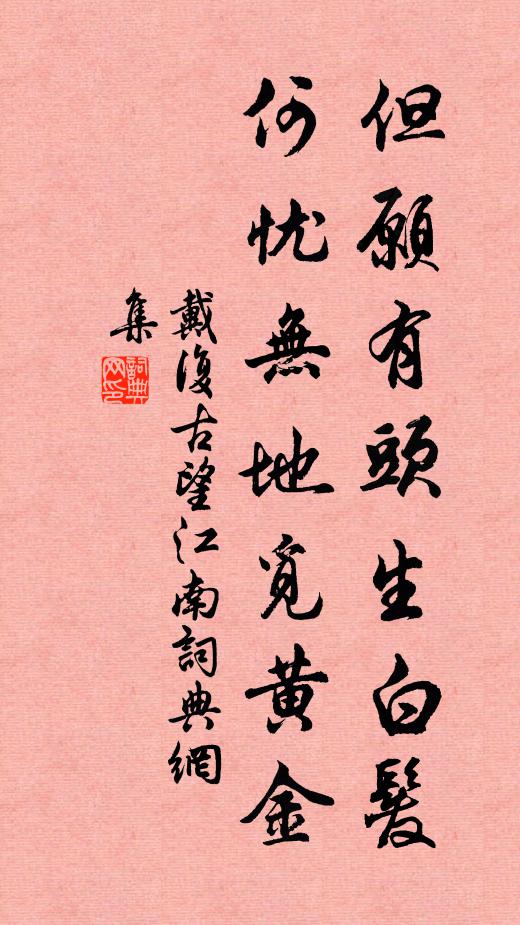 但願有頭生白髮
何忧無地覓黄金
戴復古望江南詞典網
集
詞典
网印